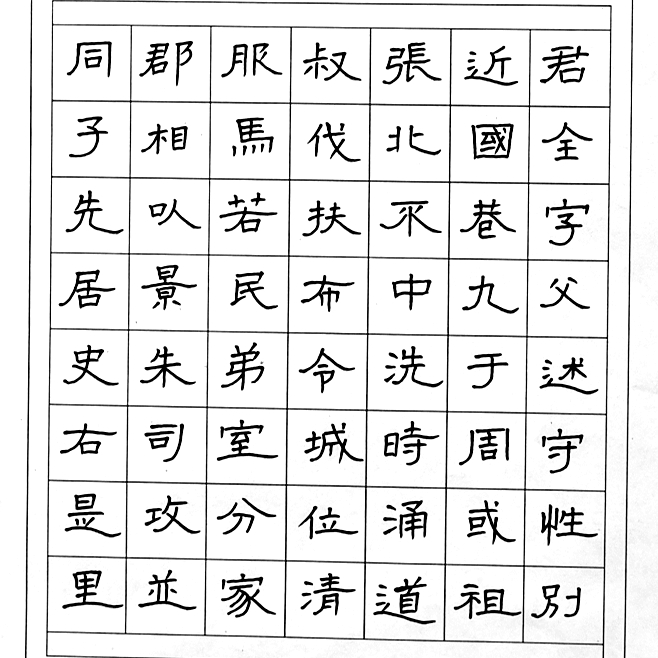 君全字父述守性別
近國巷九于周或祖
張北不中洗時涌道
叔伐扶布令城位清
服馬若民弟室分家
郡相以景朱司攻並
同子先居史右是里